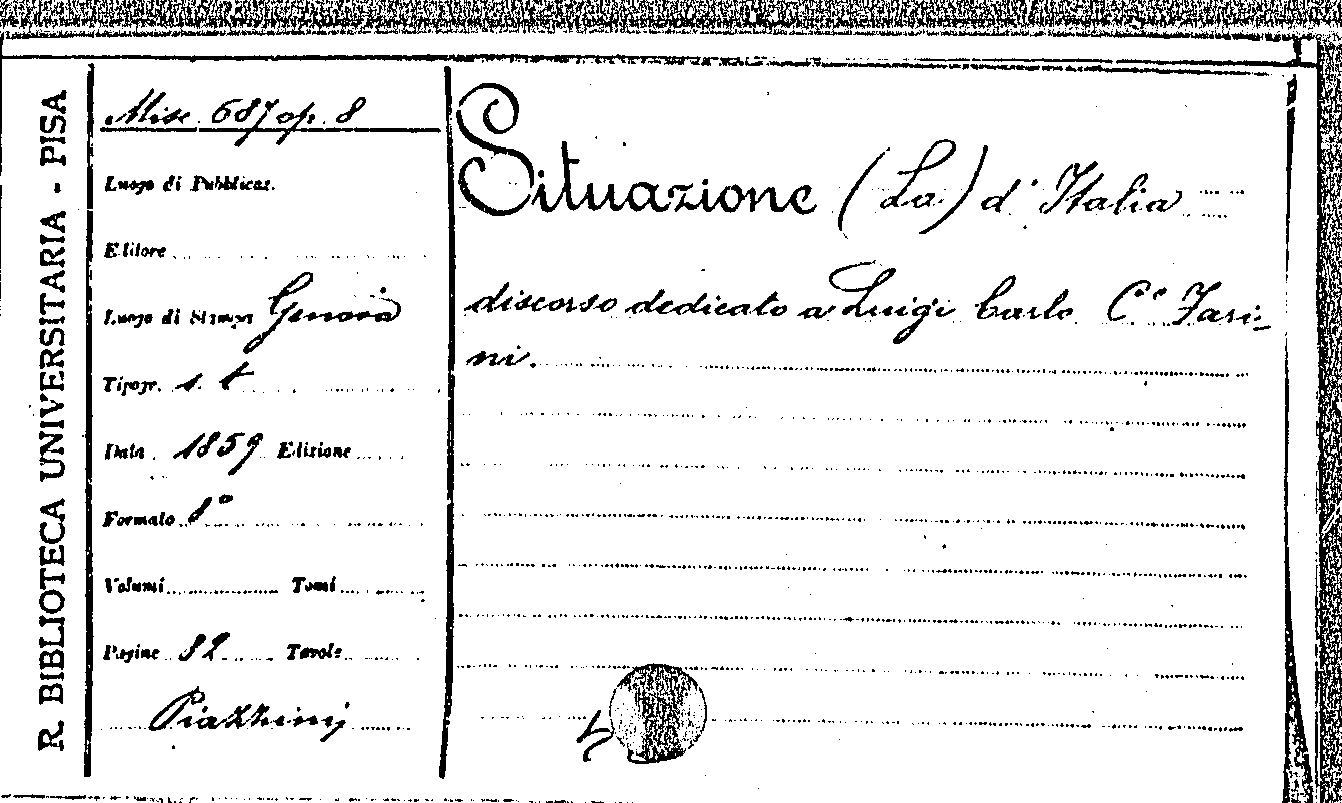 R. BIBLIOTECA UNIVERSITARIA - PISA
Misc. 687 op. 8
Luogo di Pubblicaz.
Editore
Luogo di Stampa Genova
Tipogr. s. t
Data 1859 Edizione
Formato 8°
Volumi Tomi
Pagine 32 Tavole
Piazzini
Situazione (La) d'Italia
discorso dedicato a Luigi Carlo C° Fari-
ni.